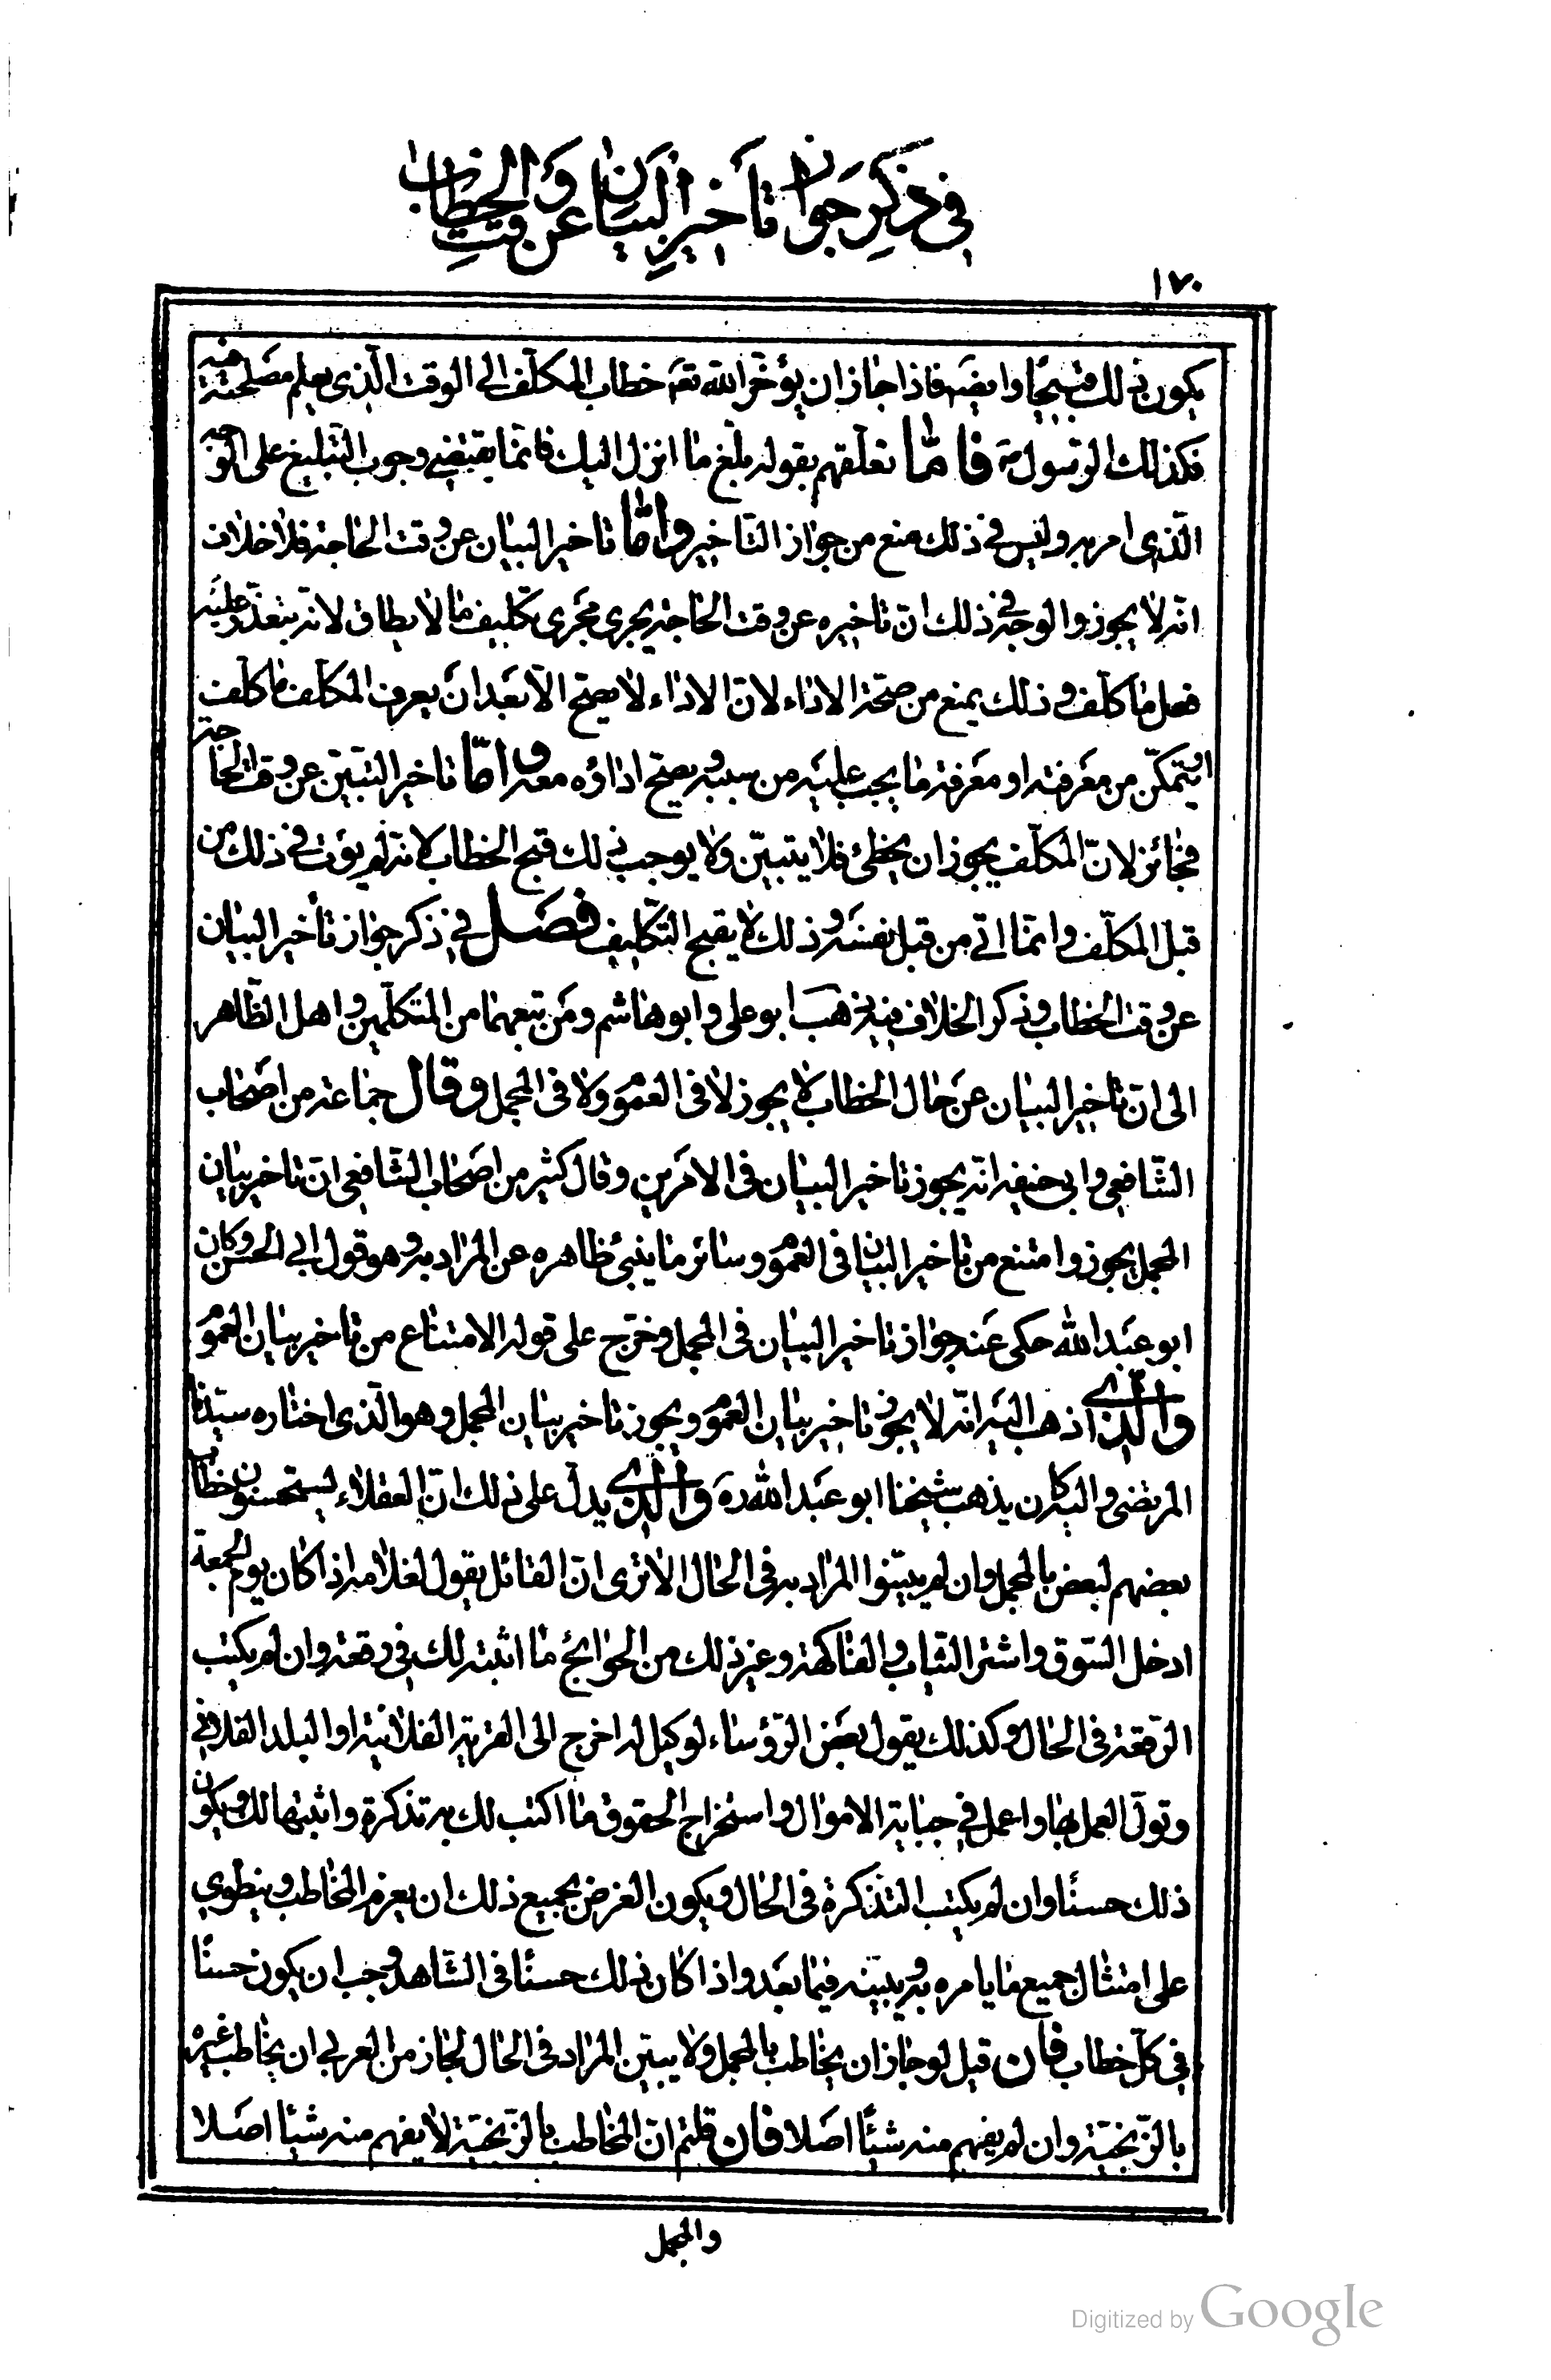 في ذكر جواز تأخير البيان عن وقت الخطاب
١٧٠
يكون ذلك قبيحًا وايضًا فاذا جاز ان يؤخّر الله تعالى خطاب المكلّف الى الوقت الّذي يعلم مصلحته فيه
فكذلك الرّسول ص فامّا تعلّقهم بقوله بلّغ ما انزل اليك فانّما يقتضي وجوب التّبليغ على الوجه
الّذي امر به وليس في ذلك منع من جواز التّاخير وامّا تاخير البيان عن وقت الحاجة فلا خلاف
انّه لا يجوز والوجه في ذلك انّ تاخيره عن وقت الحاجة يجري مجرى تكليف ما لا يطاق لانّه يتعذّر عليه
فعل ما كلّف وذلك يمنع من صحّة الاداء لانّ الاداء لا يصحّ الّا بعد ان يعرف المكلّف ما كلّف
او يتمكّن من معرفته او معرفة ما يجب عليه من سببه ويصحّ اداؤه معه وامّا تاخير التبيّن عن وقت الحاجة
فجائز لانّ المكلّف يجوز ان يخطئ فلا يتبيّن ولا يوجب ذلك قبح الخطاب لانّه لم يؤت في ذلك من
قبل المكلّف وانّما اتي من قبل نفسه وذلك لا يقبح التّكليف فصل في ذكر جواز تأخير البيان
عن وقت الخطاب وذكر الخلاف فيه ذهب ابو علي وابو هاشم ومن تبعهما من المتكلّمين واهل الظّاهر
الى انّ تاخير البيان عن حال الخطاب لا يجوز لا في العموم ولا في المجمل وقال جماعة من اصحاب
الشّافعي وابي حنيفه انّه يجوز تاخير البيان في الامرين وقال كثير من اصحاب الشّافعي انّ تاخير بيان
المجمل يجوز وامتنع من تاخير البيان في العموم وسائر ما ينبئ ظاهره عن المراد به وهو قول ابي الحسن وكان
ابو عبد الله حكى عنه جواز تاخير البيان في المجمل وخرّج على قوله الامتناع من تاخير بيان العموم
والّذي اذهب اليه انّه لا يجوز تاخير بيان العموم ويجوز تاخير بيان المجمل وهو الّذي اختاره سيّدنا
المرتضى واليه كان يذهب شيخنا ابو عبد الله ره والّذي يدلّ على ذلك انّ العقلاء يستحسنون خطاب
بعضهم لبعض بالمجمل وان لم يبيّنوا المراد به في الحال الا ترى انّ القائل يقول لغلامه اذا كان يوم الجمعة
ادخل السّوق واشتر الثّياب والفاكهة وغير ذلك من الحوايج ما اثبته لك في رقعة وان لم يكتب
الرّقعة في الحال وكذلك يقول بعض الرّؤساء لوكيل له اخرج الى القرية الفلانيّة او البلد الفلاني
وتولّ العمل بها واعمل في جباية الاموال واستخراج الحقوق ما اكتب لك به تذكرة واثبتها لك ويكون
ذلك حسنًا وان لم يكتب التّذكرة في الحال ويكون الغرض بجميع ذلك ان يعزم المخاطب وينطوي
على امتثال جميع ما يامره به ويبيّنه فيما بعد واذا كان ذلك حسنًا في الشّاهد وجب ان يكون حسنًا
في كلّ خطاب فان قيل لو جاز ان يخاطب بالمجمل ولا يبيّن المراد في الحال لجاز من العربي ان يخاطب غيره
بالزّنجيّة وان لم يفهم منه شيئًا اصلا فان قلتم انّ المخاطب بالزّنجيّة لا يفهم منه شيئًا اصلا
والمجمل
Digitized by Google